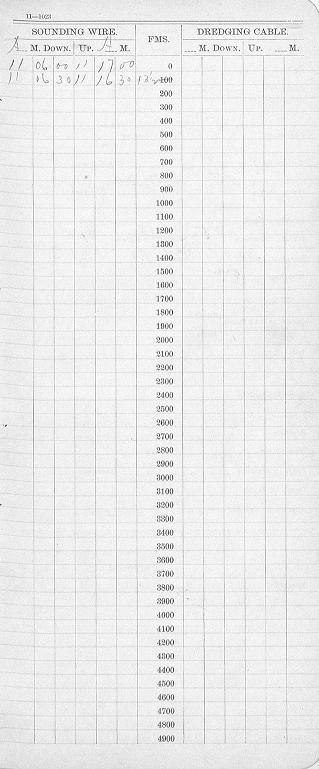 11—1023
SOUNDING WIRE. FMS. DREDGING CABLE.
A. M. DOWN. UP. A. M. M. DOWN. UP. M.
11 06 00 11 17 00 0
11 06 30 11 16 30 100
200
300
400
500
600
700
800
900
1000
1100
1200
1300
1400
1500
1600
1700
1800
1900
2000
2100
2200
2300
2400
2500
2600
2700
2800
2900
3000
3100
3200
3300
3400
3500
3600
3700
3800
3900
4000
4100
4200
4300
4400
4500
4600
4700
4800
4900